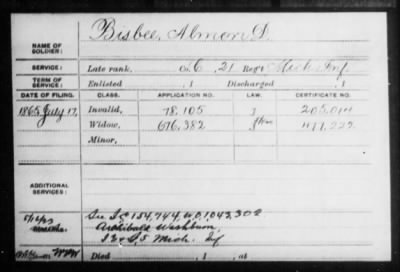 Bisbee, Almon D.
NAME OF SOLDIER:
SERVICE: Late rank, Co. G, 21 Reg't Mich. Inf.
TERM OF SERVICE: Enlisted , 1 Discharged , 1
DATE OF FILING. CLASS. APPLICATION NO. LAW. CERTIFICATE NO.
1865, July 17, Invalid, 78.105
Widow, 676,382 477,222
Minor,
ADDITIONAL SERVICES:
See 154,744, 1,043,302
Archibald Washburn,
Mich. Inf
Died , 1 , at